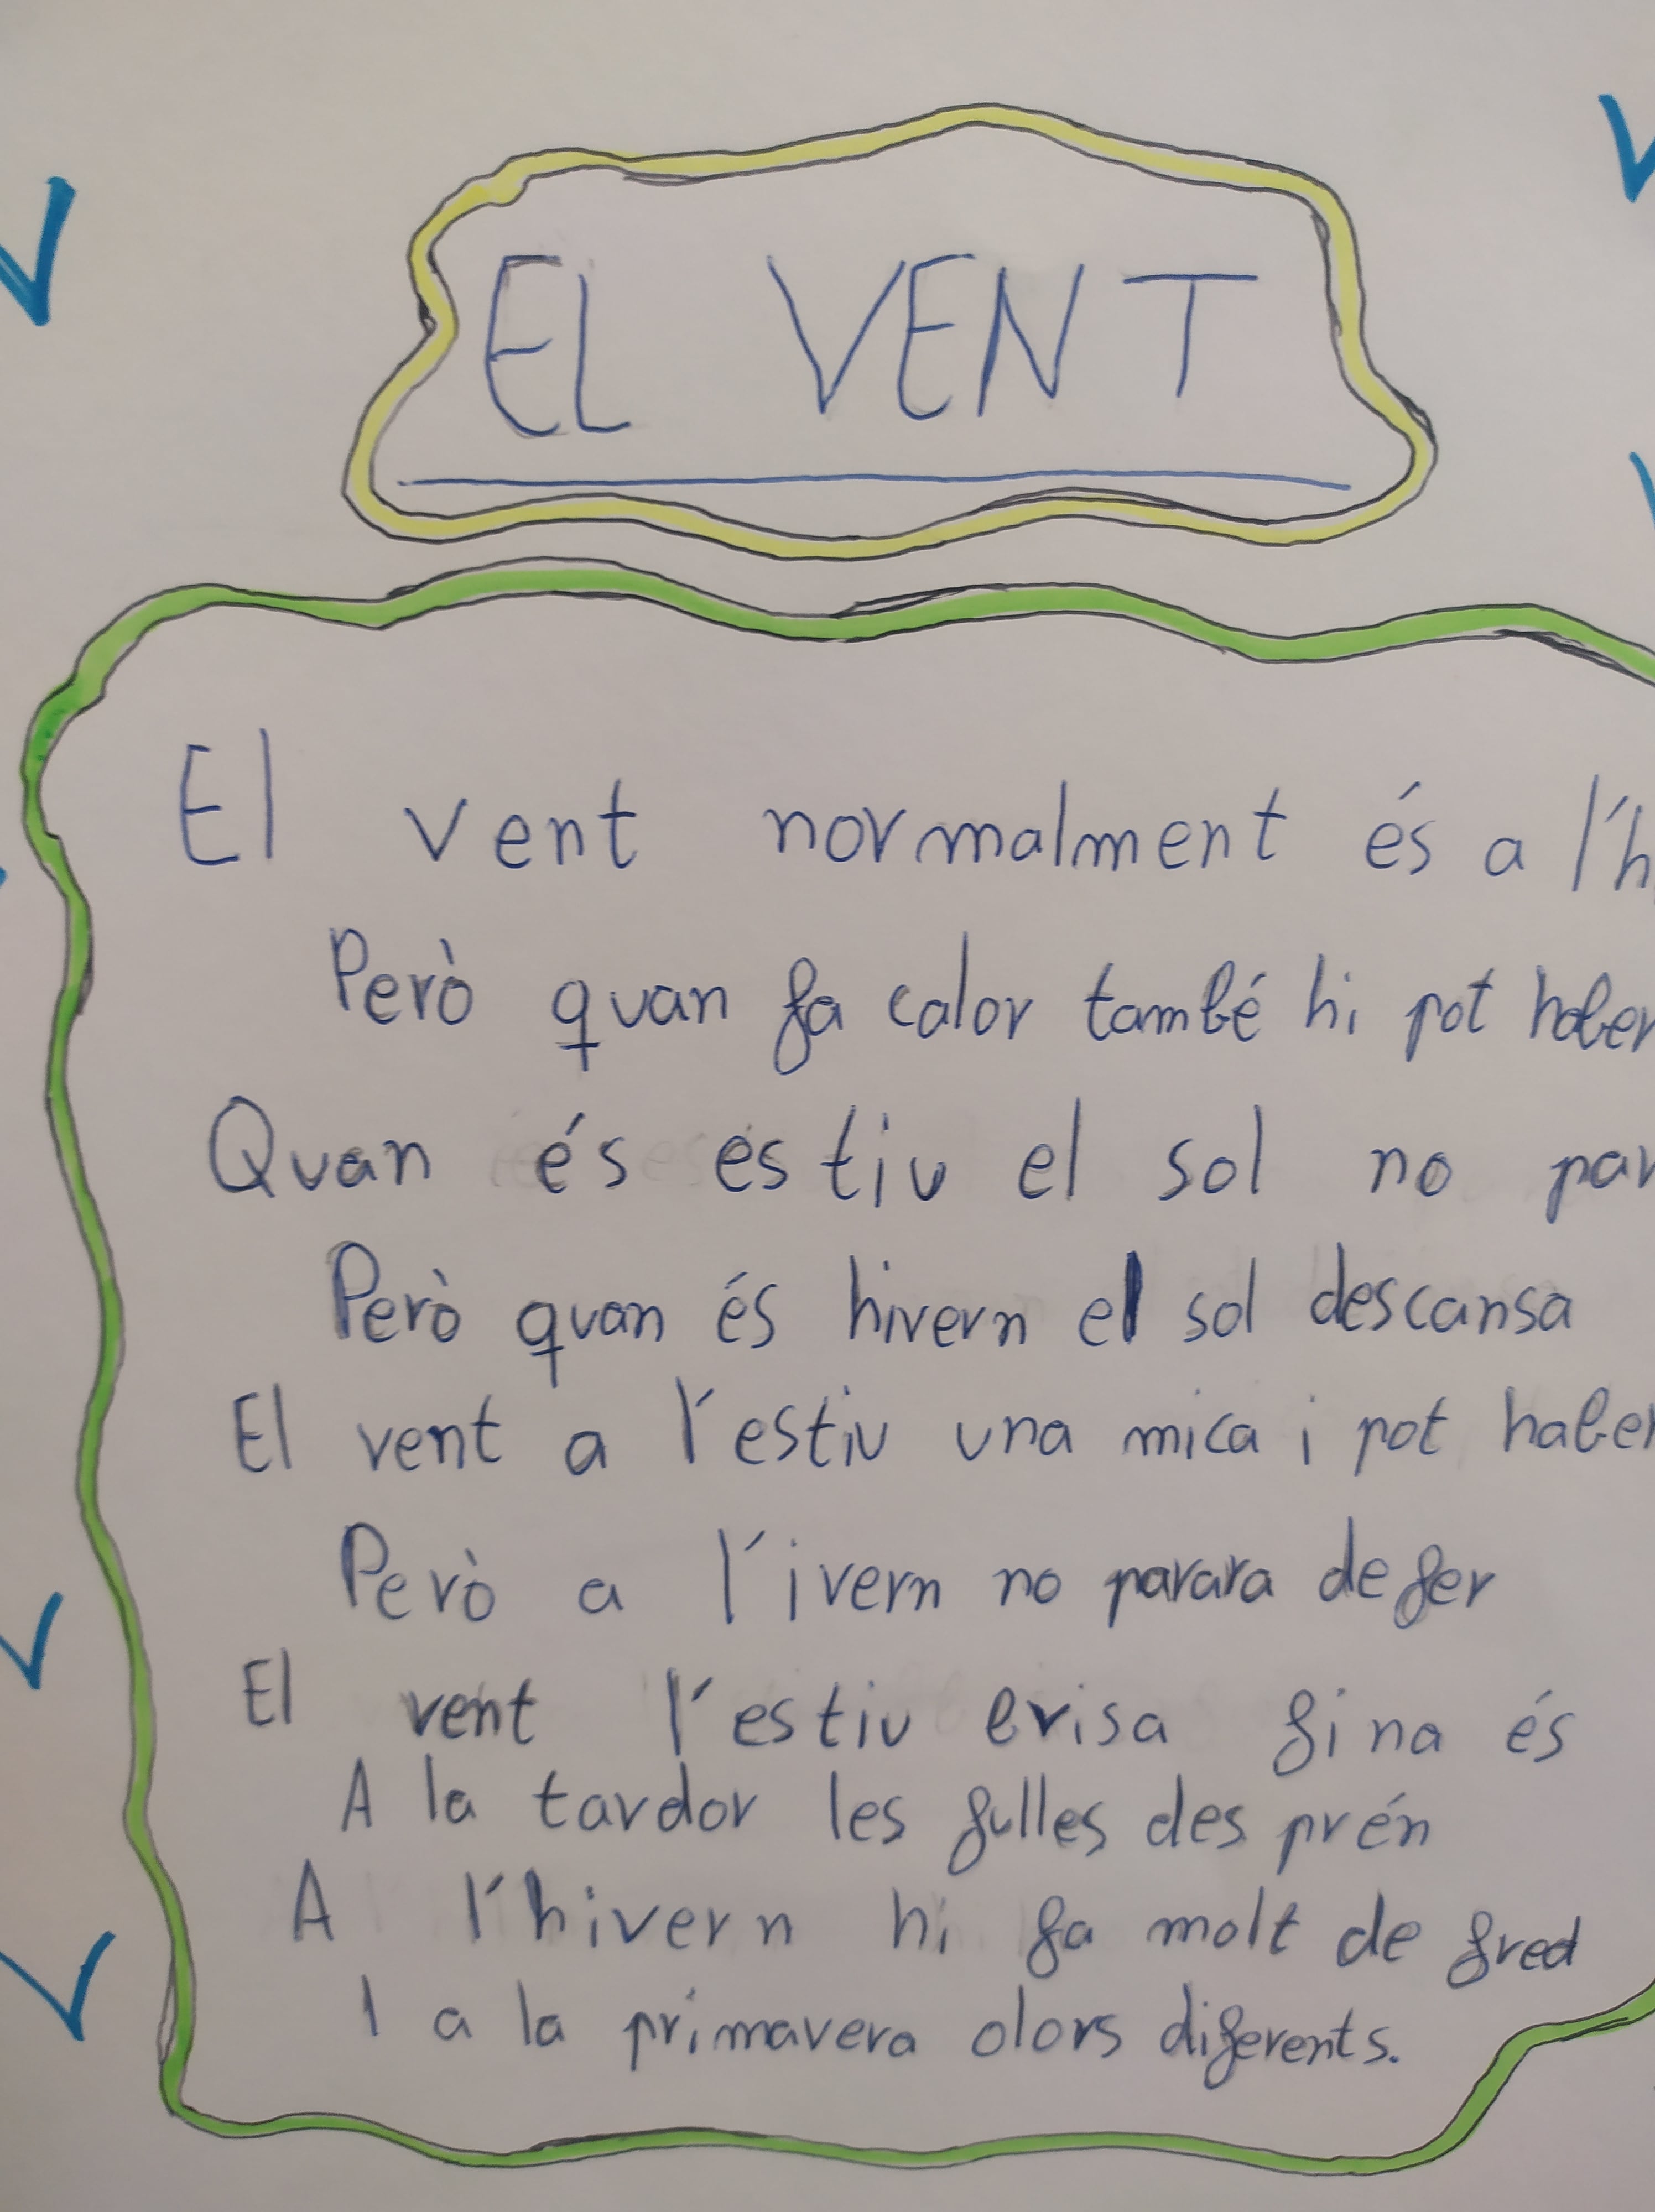 EL VENT
El vent normalment és a l'h
Però quan fa calor també hi pot haber
Quan és estiu el sol no par
Però quan és hivern el sol descansa
El vent a l'estiu una mica i pot haber
Però a l'ivern no parara de fer
El vent l'estiu brisa fina és
A la tardor les fulles des prén
A l'hivern hi fa molt de fred
I a la primavera olors diferents.